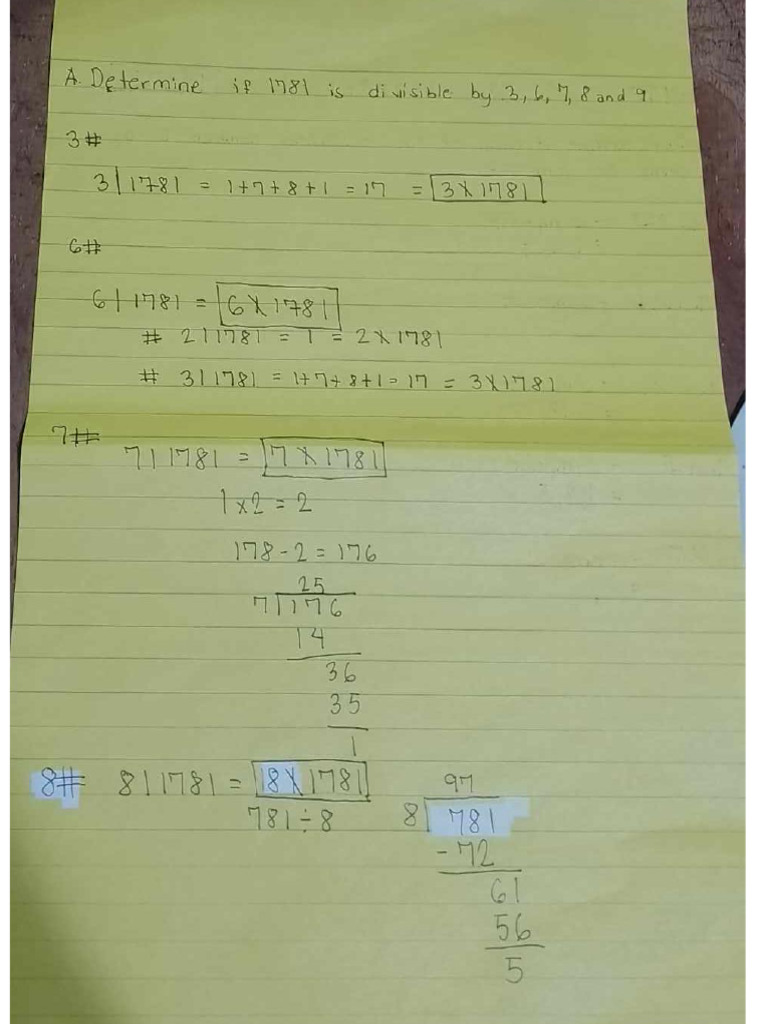 A. Determine if 1781 is divisible by 3, 6, 7, 8 and 9
3#
3 | 1781 = 1+7+8+1 = 17 = 3 ∤ 1781
6#
6 | 1781 = 6 ∤ 1781
# 2 | 1781 = 1 = 2 ∤ 1781
# 3 | 1781 = 1+7+8+1 = 17 = 3 ∤ 1781
7#
7 | 1781 = 7 ∤ 1781
1 × 2 = 2
178 - 2 = 176
25
7 | 176
14
36
35
1
8# 8 | 1781 = 8 ∤ 1781
781 ÷ 8
97
8 | 781
- 72
61
56
5